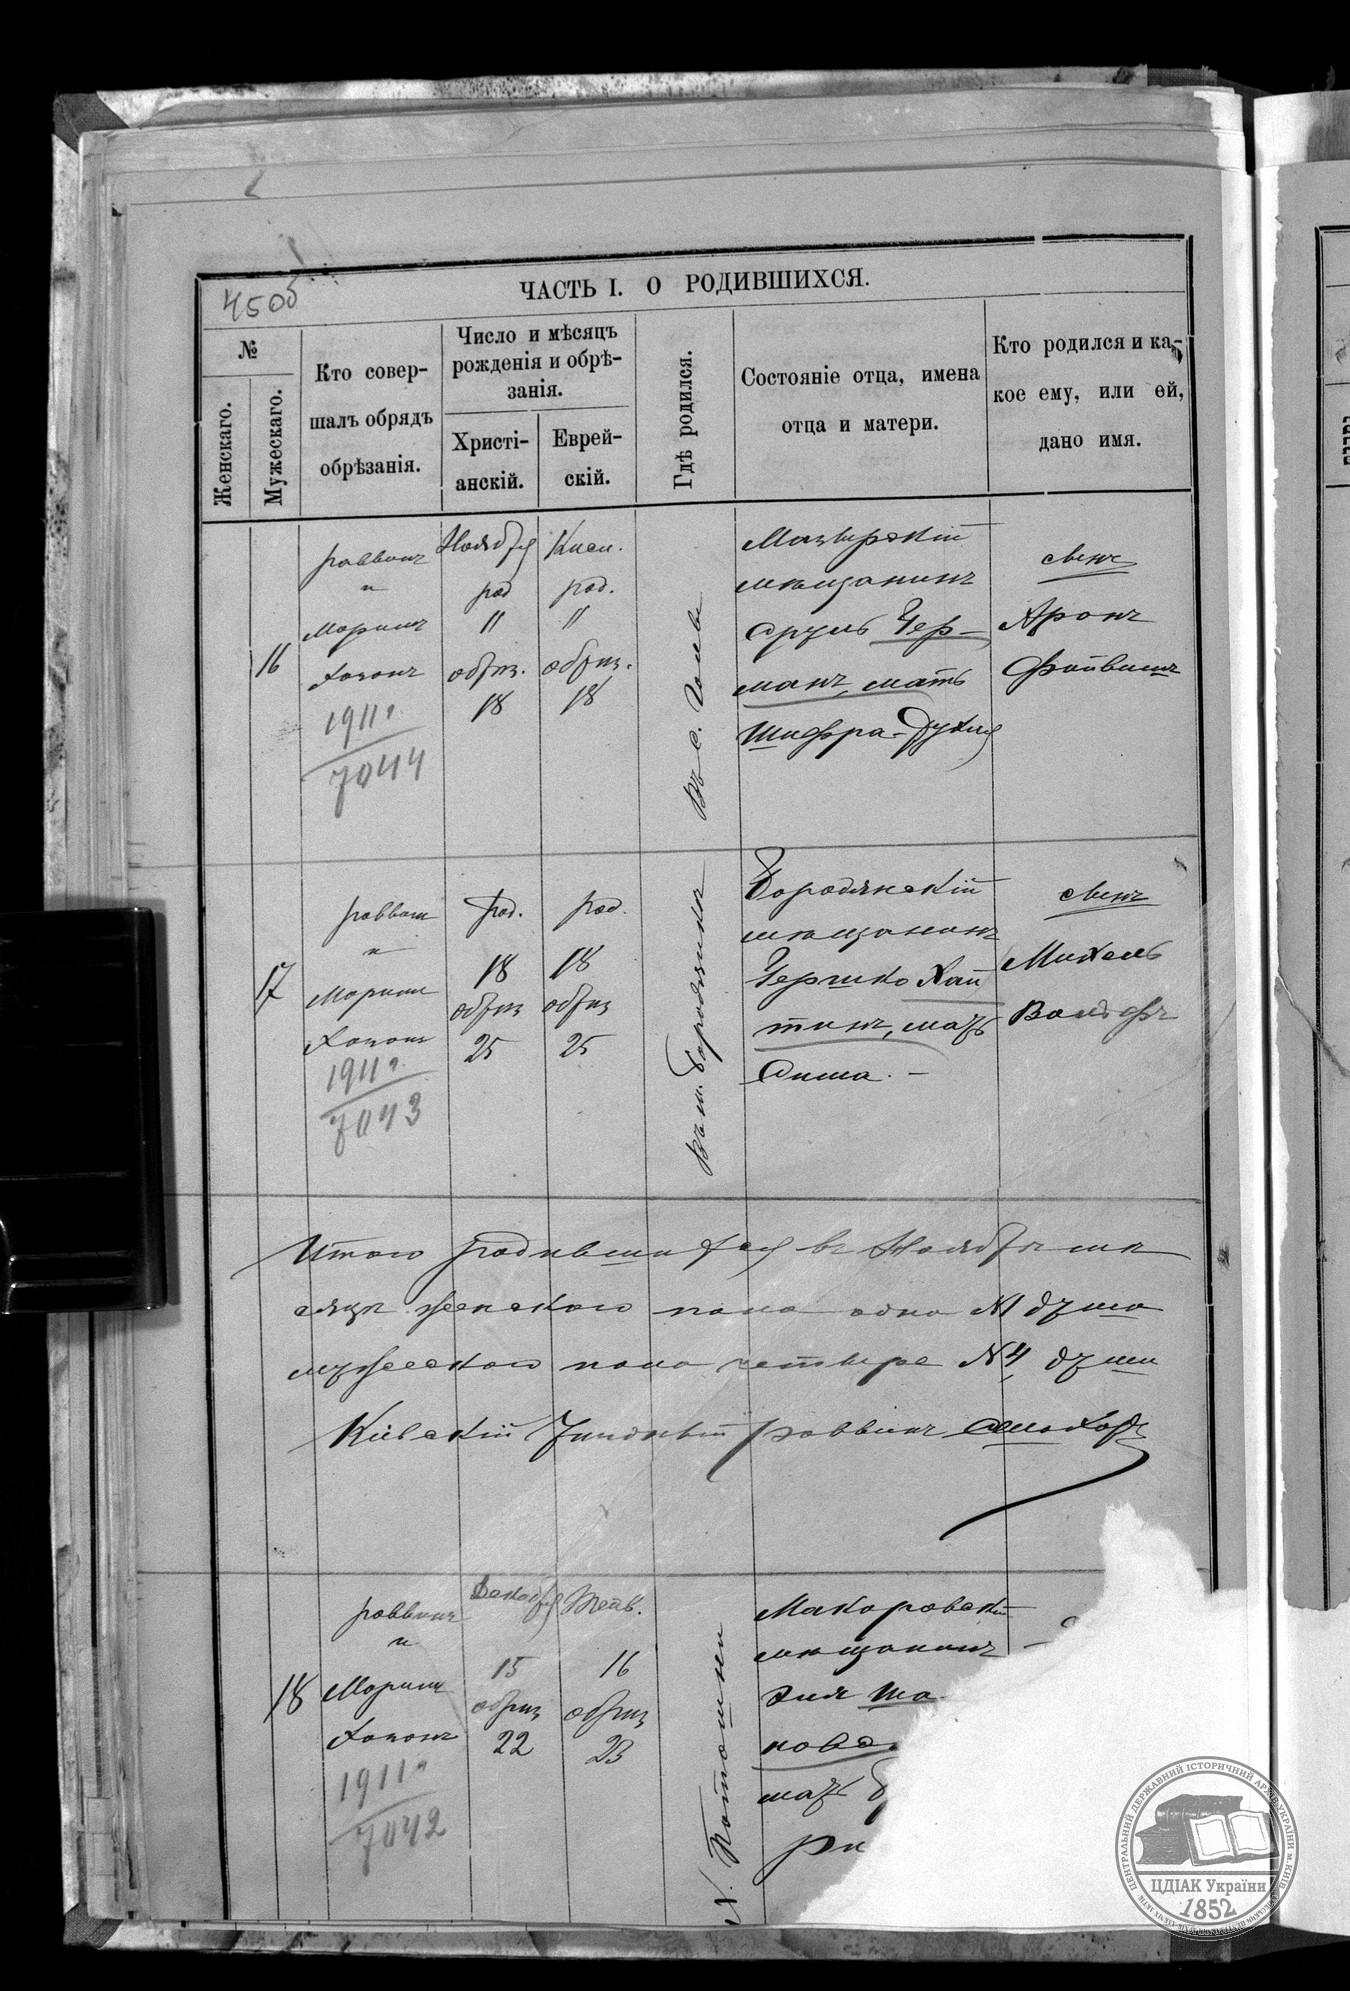 450б
ЧАСТЬ I. О РОДИВШИХСЯ.
№
Женскаго.
Мужескаго.
Кто совер-
шалъ обрядъ
обрѣзанія.
Число и мѣсяцъ
рожденія и обрѣ-
занія.
Христі-
анскій.
Еврей-
скій.
Гдѣ родился.
Состояніе отца, имена
отца и матери.
Кто родился и ка-
кое ему, или ей,
дано имя.
16
раввинъ
и
1911г.
7044
Ноября
род
11
обрѣз.
18
Кисл.
род.
11
обрѣз.
18
Въ с.
Мозырскій
мѣщанинъ
Сруль Гер-
манъ, мать
Шифра-
сынъ
Аронъ
Файвишъ
17
раввинъ
и
1911г.
7043
род.
18
обрѣз
25
род.
18
обрѣз
25
Въ м. Бородянка
Бородянскій
мѣщанинъ
Гершко Хай
тинъ, мать
сынъ
Михель
Вольфъ
Итого родившихся въ Ноябрѣ мѣ
сяцѣ женскаго пола одна №1 душа
мужескаго пола четыре №4 души
Кіевскій Уѣздный раввинъ
18
раввинъ
и
1911г.
7042
Декабря
15
обрѣз
22
Тейв.
16
обрѣз
23
Макаровскій
мѣщанинъ
мать
ЦЕНТРАЛЬНИЙ ДЕРЖАВНИЙ ІСТОРИЧНИЙ АРХІВ УКРАЇНИ М. КИЇВ
ЦДІАК України
1852